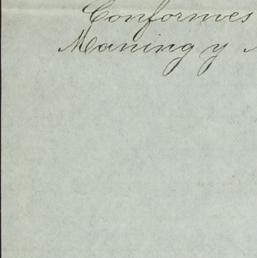 Conformes
Maning y